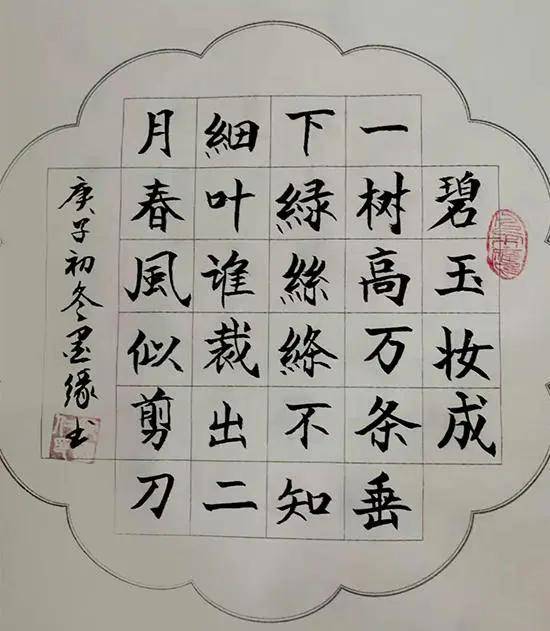 碧玉妆成
一树高万条垂
下緑絲絛不知
細叶谁裁出二
月春風似剪刀
庚子初冬墨缘书